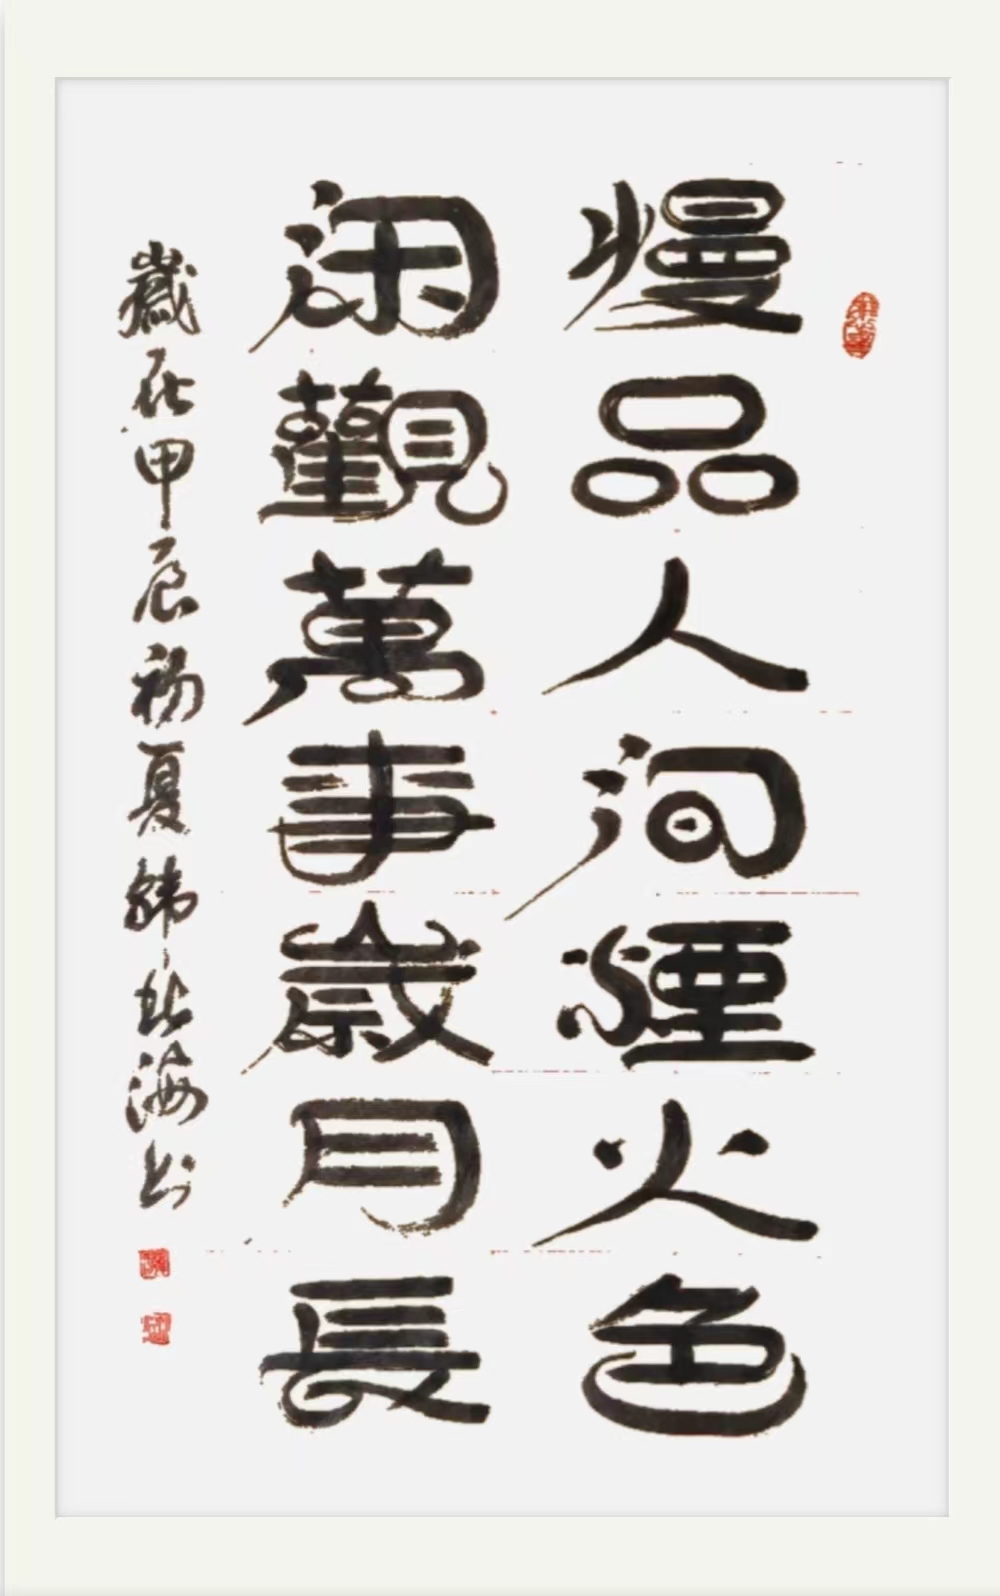 慢品人间煙火色
闲觀萬事歲月長
歲在甲辰初夏韩北海书